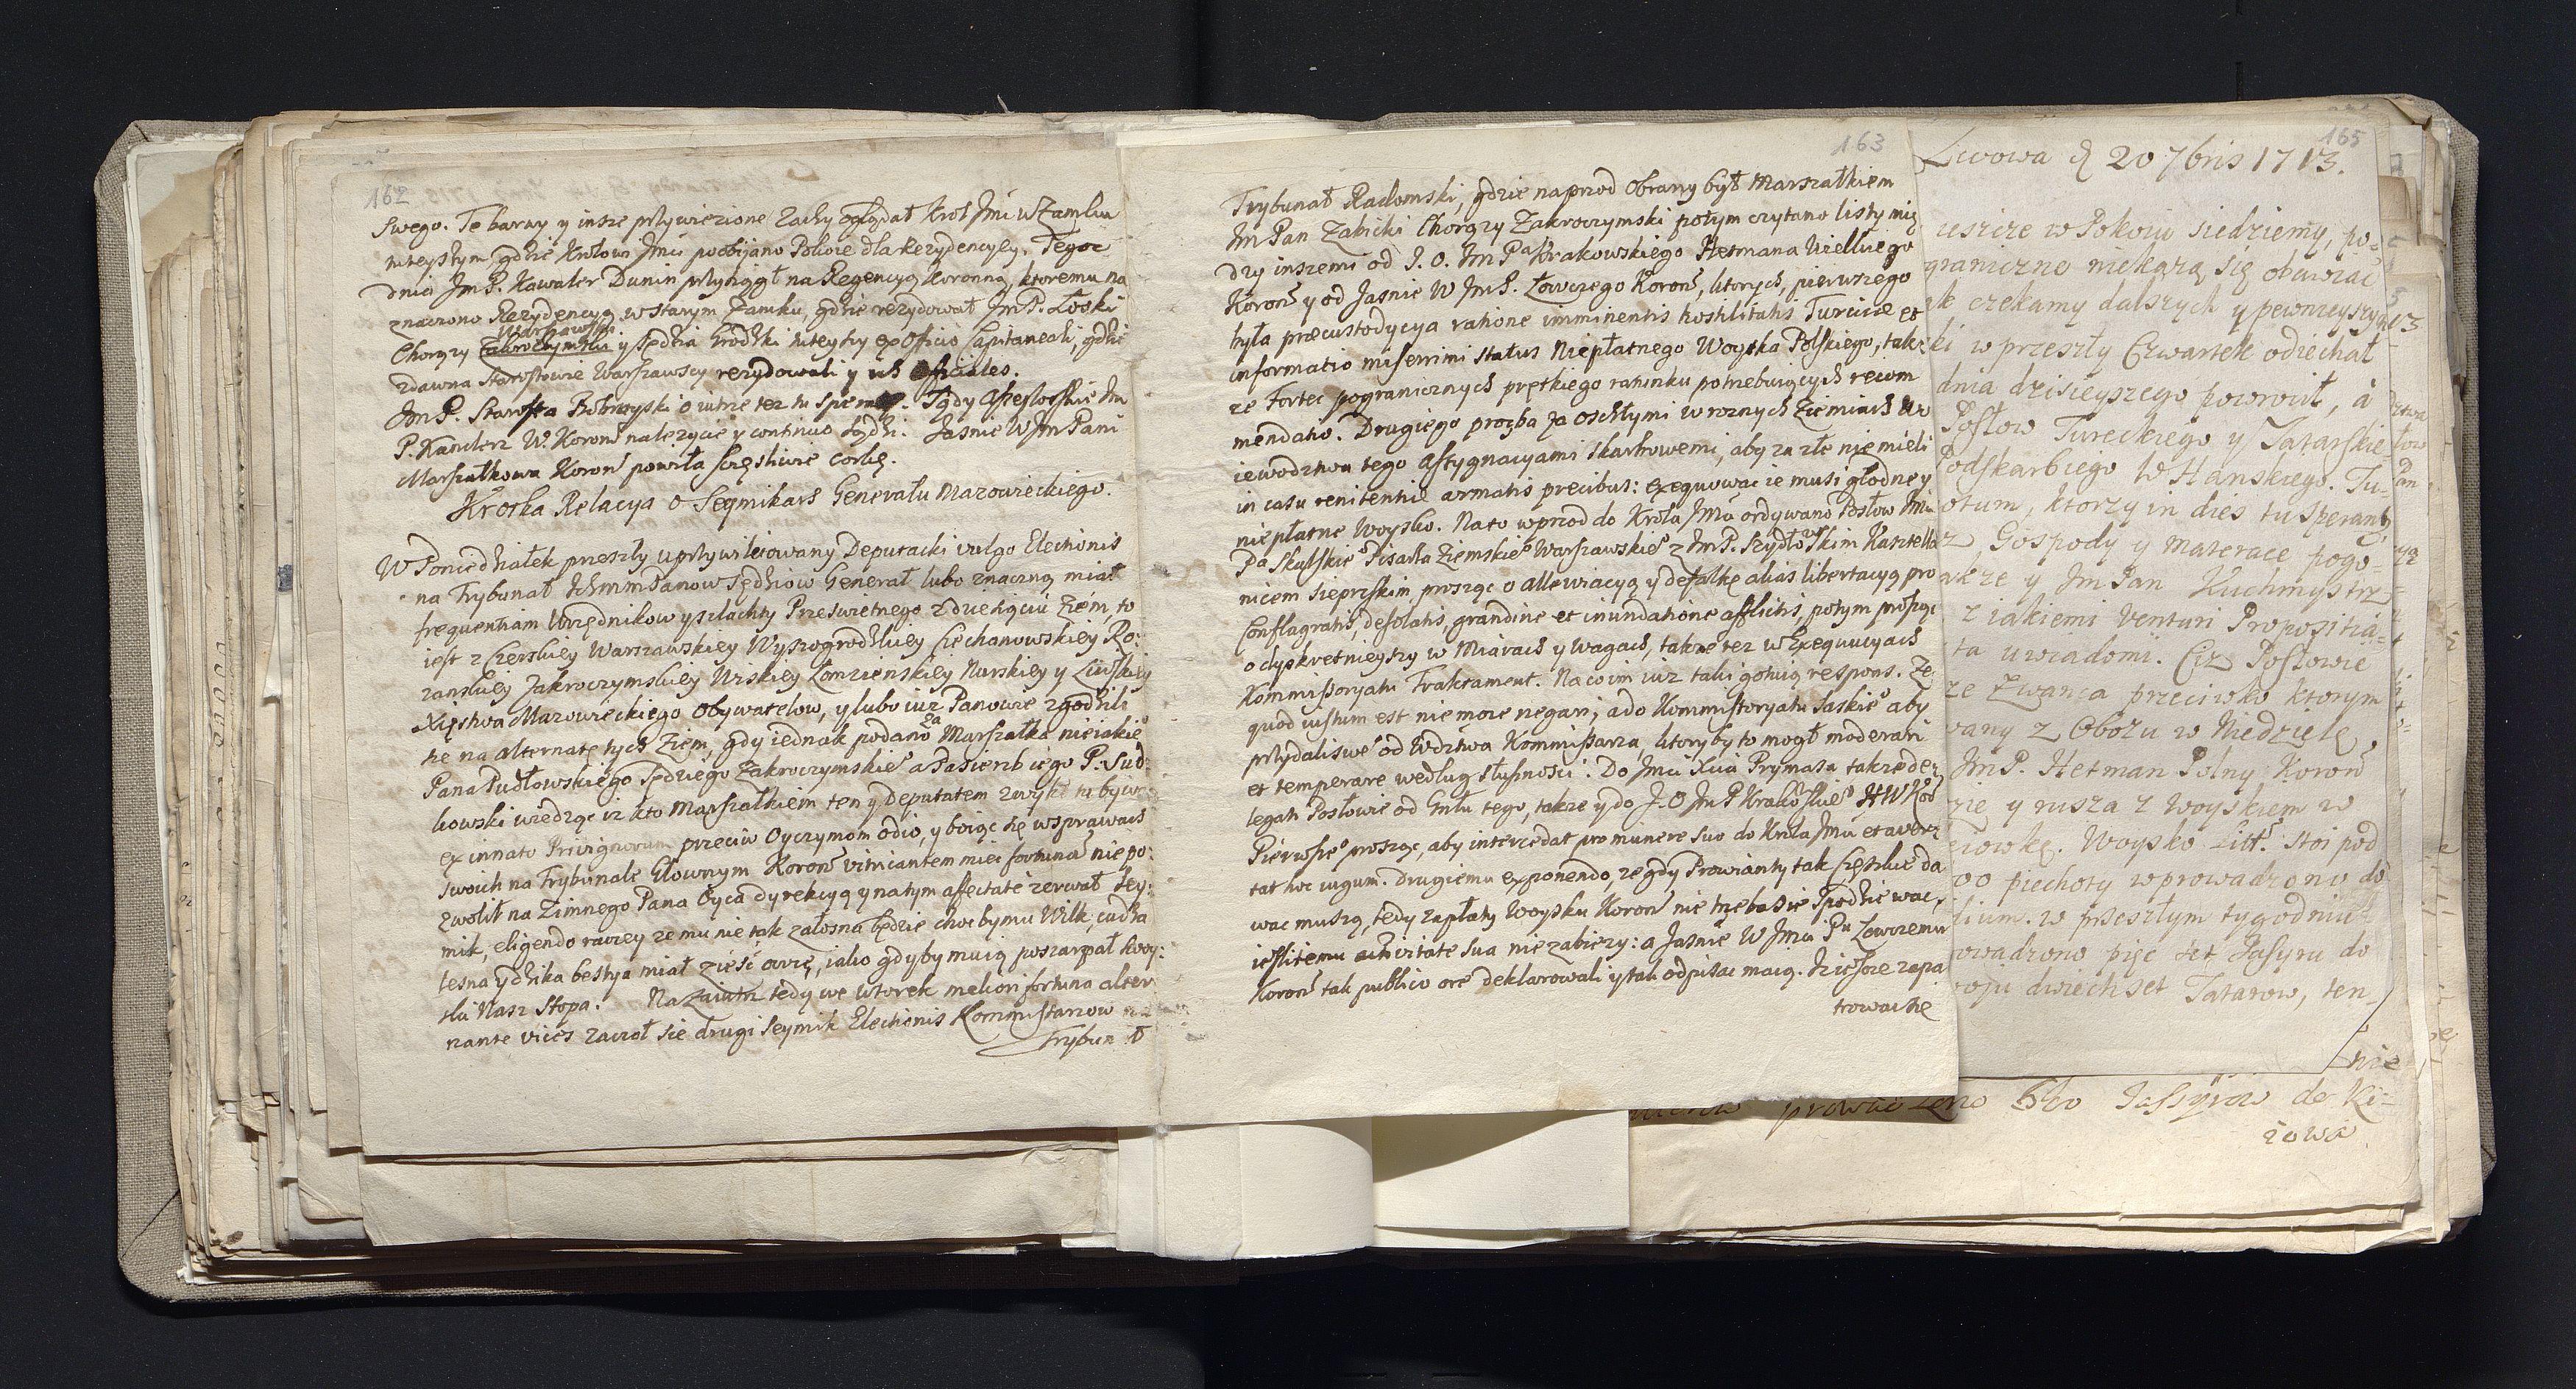 162
swego. Te barwy y insze przywiezione rachy oglądał Krol Jmć w Zamku
tuteyszym, gdzie Krolowi Jmci poobijano Pokoie dla Rezydencyey. Tegoż
dnia Jm P. Kawaler Dunin przyiągł na Regencyą Koronną, ktoremu na
znaczono Rezydencyą w starym Zamku, gdzie rezydował Jm P. Łoski
Warszawski
Chorąży Zakroczymski y Sędzia Grodzki tuteyszy ex officio Capitaneali, gdzie
zdawna Starostowie Warszawscy rezydowali y ich Officiales.
Jm P. Starosta Bobrzyski o iutrze też tu. Sądy Assessorskie Jm
P. Kanclerz W. Koron̄ należycie y continuo sądzi. Jaśnie W Jm Pani
Marszałkowa Koron̄ powiła szczęśliwie corkę.
Krotka Relacya o Seymikach Generału Mazowieckiego.
W Poniedziałek przeszły uprzywileiowany Deputacki vulgo Electionis
na Trybunał Ichmm Panow Sędziow Generał lubo znaczną miał
frequentiam Urzędnikow y szlachty Prześwietnego z dziesięciu Ziem, to
iest z Czerskiey Warszawskiey Wyszogrodzkiey Ciechanowskiey Ro:
zanskiey Zakroczymskiey Wiskiey Łomzenskiey Nurskiey y Liwskiey
Xięstwa Mazowieckiego Obywatelow, y lubo iuz Panowie zgodzili
się na alternatę tych Ziem, gdy iednak podano za Marszałka nieiakie͠
Pana Pudłowskiego Sędziego Zakroczymskie͠ a Pasierb iego P. Sud:
kowski wiedząc iż kto Marszałkiem ten y Deputatem zwykł tu bywać
ex innato Privignorum przeciw Oyczymom odio, y boiąc się w sprawach
swoich na Trybunale Głownym Koron̄ vitricantem mieć fortunam nie po:
zwolił na Zimnego Pana Oyca dyrekcyą y na tym affectate zerwał Sey:
mik, eligendo raczey że mu nie tak załosna będzie choćby mu Wilk, cudza
leśna y dzika bestya miał zieść owcę, iako gdyby mu ią poszarpał kooy:
tki Nasz Stopa. Nazaiutrz tedy we wtorek meliori fortuna alter
nante vices zaczoł sie drugi Seymik Electionis Kommissarzow na
Trybunał
163
Trybunał Radomski, gdzie naprzod obrany był Marszałkiem
Jm Pan Zabicki Chorąży Zakroczymski potym czytano listy mię
dzy inszemi od J. O. Jm Pa Krakowskiego Hetmana Wielkiego
Koron̄ y od Jaśnie W Jm P. Łowczego Koron̄, ktorych, pierwszego
była præcustodycya ratione imminentis hostilitatis Turcicæ et
informatio miserrimi status Niepłatnego Woyska Polskiego, takz
ze Fortec pogranicznych prętkiego ratunku potrzebuiących recom
mendatio. Drugiego prozba za oschłymi w roznych Ziemiach Wo
iewodztwa tego assygnacyami skarbowemi, aby za złe nie mieli
in casu renitentiæ armatis precibus: exequować ie musi głodne y
niepłatne Woysko. Na to wprzod do Krola Jmci ordynano Posłow Jmci
Pa Skulskie͠ Pisarza Ziemskie͠ Warszawskie͠ z Jm P. Szydłowskim Kasztella
nicem Sieprskim, prosząc o allewiacyą y defalkę alias libertacyą pro
Conflagratis, desolatis, grandine et inundatione afflictis, potym prosząc
o dyskretnieyszy w Miarach y wagach, takze tez w Exequucyach
Kommissoryatu Traktament. Na co im iuz taki gotuią respons. Ze
quod iustum est nie moze negari; a do Kommissoryatu Saskie͠ aby
przydali swe͠ od Wdztwa Kommissarza, ktoryby to mogł moderari
et temperare według słusznosci. Do Jmci Xcia Prymasa takze de
legati Posłowie od Gnłu tego, takze y do J. O Jm P Krakoskie͠ HWKoo
Pierwsze͠ prosząc, aby intercedat pro munere suo do Krola Jmci et aver
tat hoc iugum. Drugiemu exponendo, ze gdy Prowianty tak ciężkie da
wac muszą, tedy zapłaty Woysku Koron̄ nie trzeba sie spodziewac,
iesli temu authoritate sua nie zabiezy: a Jaśnie W Jmci Pu Łowczemu
Koron̄ tak publico ore deklarowali y tak odpisac maią.
trowac się
165
Lwowa d 20 7bris 1713.
uszcze w Pokoiu siedziemy, po-
graniczne niekażą się obawiać
k czekamy dalszych y pewnieyszy
ki w przeszły Czwartek odiechał
dnia dzisieyszego powrocił, á
Posłow Tureckiego y Tatarskie-
Podskarbiego W Hanskiego. Tu-
otum, ktorzy in dies tu sperant
z, Gospody y materace pogo-
akze y Jm Pan Kuchmystrz
z iakiemi venturi Propozitia-
ta uwiadomi. Ciz Posłowie
ze Zwanca przeciwko ktorym
wany z Obozu w Niedzielę,
Jm P. Hetman Polny Koron̄
zie y rusza z woyskiem w
ciowkę. Woysko Litt. Stoi pod
00 piechoty wprowadzono do
lium. w przeszłym tygodniu
owadzono pięc set Jassyru do
oju dwiechset Tatarow, ten-
nie
prowadzono Jassyrow do Ki-
iowa